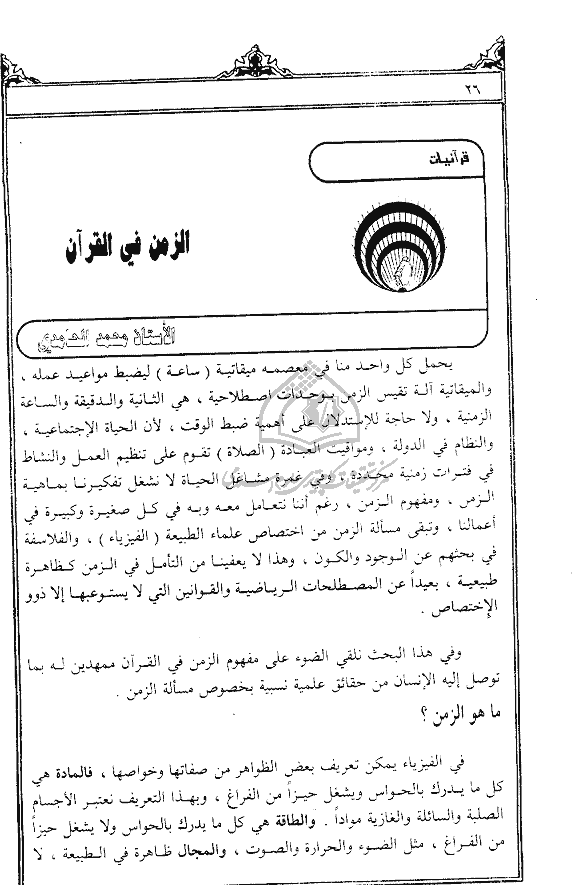 ٢٦
قرآنيات
الزمن في القرآن
الأستاذ محمد الحامدي
يحمل كل واحد منا في معصمه ميقاتية ( ساعة ) ليضبط مواعيد عمله ،
والميقاتية آلة تقيس الزمن بوحدات اصطلاحية ، هي الثانية والدقيقة والساعة
الزمنية ، ولا حاجة للإستدلال على أهمية ضبط الوقت ، لأن الحياة الإجتماعية ،
والنظام في الدولة ، ومواقيت العبادة ( الصلاة ) تقوم على تنظيم العمل والنشاط
في فترات زمنية محددة ، وفي غمرة مشاغل الحياة لا نشغل تفكيرنا بماهية
الزمن ، ومفهوم الزمن ، رغم أننا نتعامل معه وبه في كل صغيرة وكبيرة في
أعمالنا ، وتبقى مسألة الزمن من اختصاص علماء الطبيعة ( الفيزياء ) ، والفلاسفة
في بحثهم عن الوجود والكون ، وهذا لا يعفينا من التأمل في الزمن كظاهرة
طبيعية ، بعيداً عن المصطلحات الرياضية والقوانين التي لا يستوعبها إلا ذوو
الإختصاص .
وفي هذا البحث نلقي الضوء على مفهوم الزمن في القرآن ممهدين له بما
توصل إليه الإنسان من حقائق علمية نسبية بخصوص مسألة الزمن .
ما هو الزمن ؟
في الفيزياء يمكن تعريف بعض الظواهر من صفاتها وخواصها ، فالمادة هي
كل ما يدرك بالحواس ويشغل حيزاً من الفراغ ، وبهذا التعريف نعتبر الأجسام
الصلبة والسائلة والغازية مواداً . والطاقة هي كل ما يدرك بالحواس ولا يشغل حيزاً
من الفراغ ، مثل الضوء والحرارة والصوت ، والمجال ظاهرة في الطبيعة ، لا